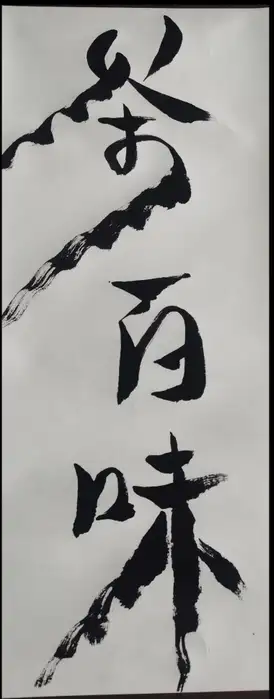 茶百味